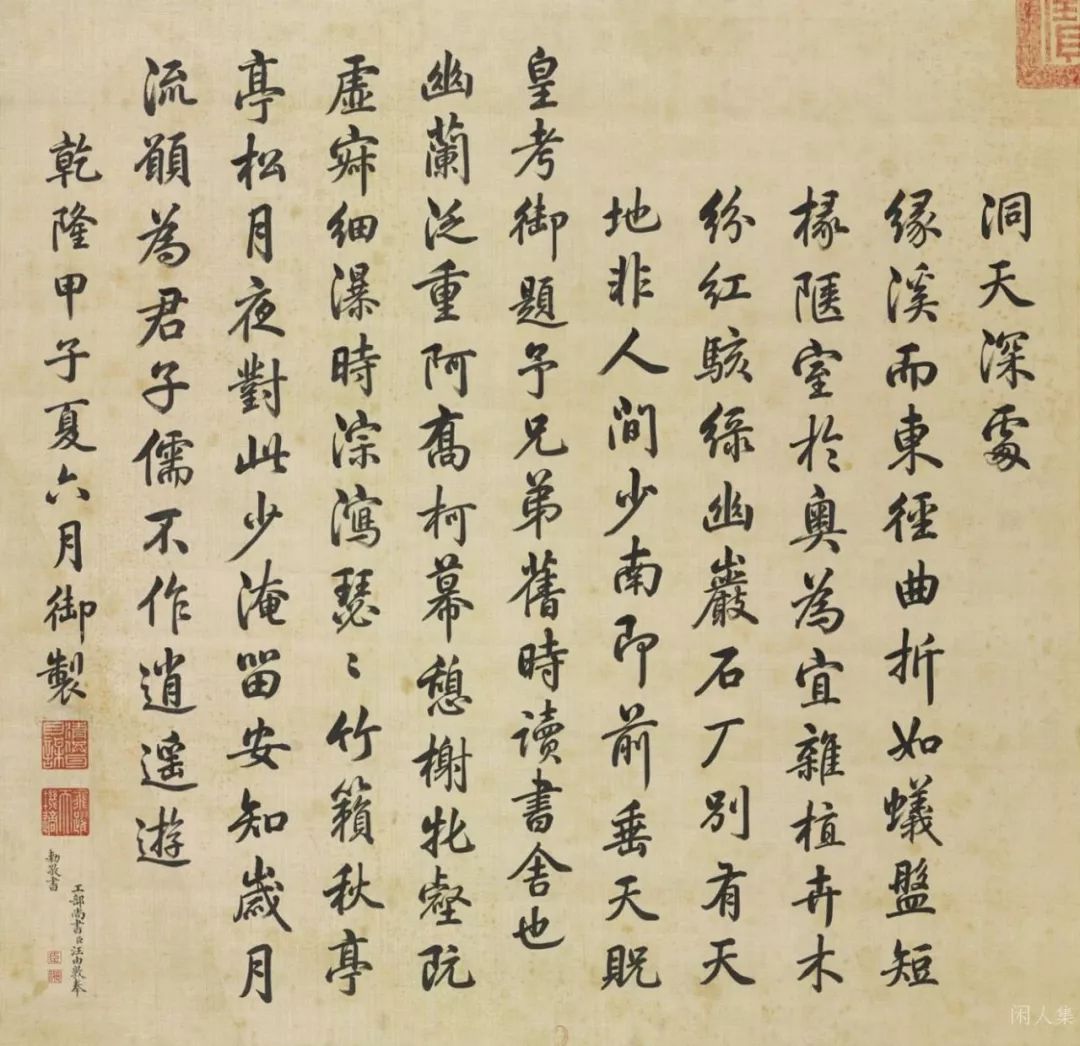 洞天深處
緣溪而東徑曲折如蟻盤短
椽陋室於奧為宜雜植卉木
紛紅駭綠幽巖石厂別有天
地非人間少南即前垂天貺
皇考御題予兄弟舊時讀書舍也
幽蘭泛重阿喬柯幕憩榭牝壑既
虛寂細瀑時淙瀉瑟〻竹籟秋亭
亭松月夜對此少淹留安知歲月
流願為君子儒不作逍遙遊
乾隆甲子夏六月御製
工部尚書臣汪由敦奉
勅敬書
闲人集